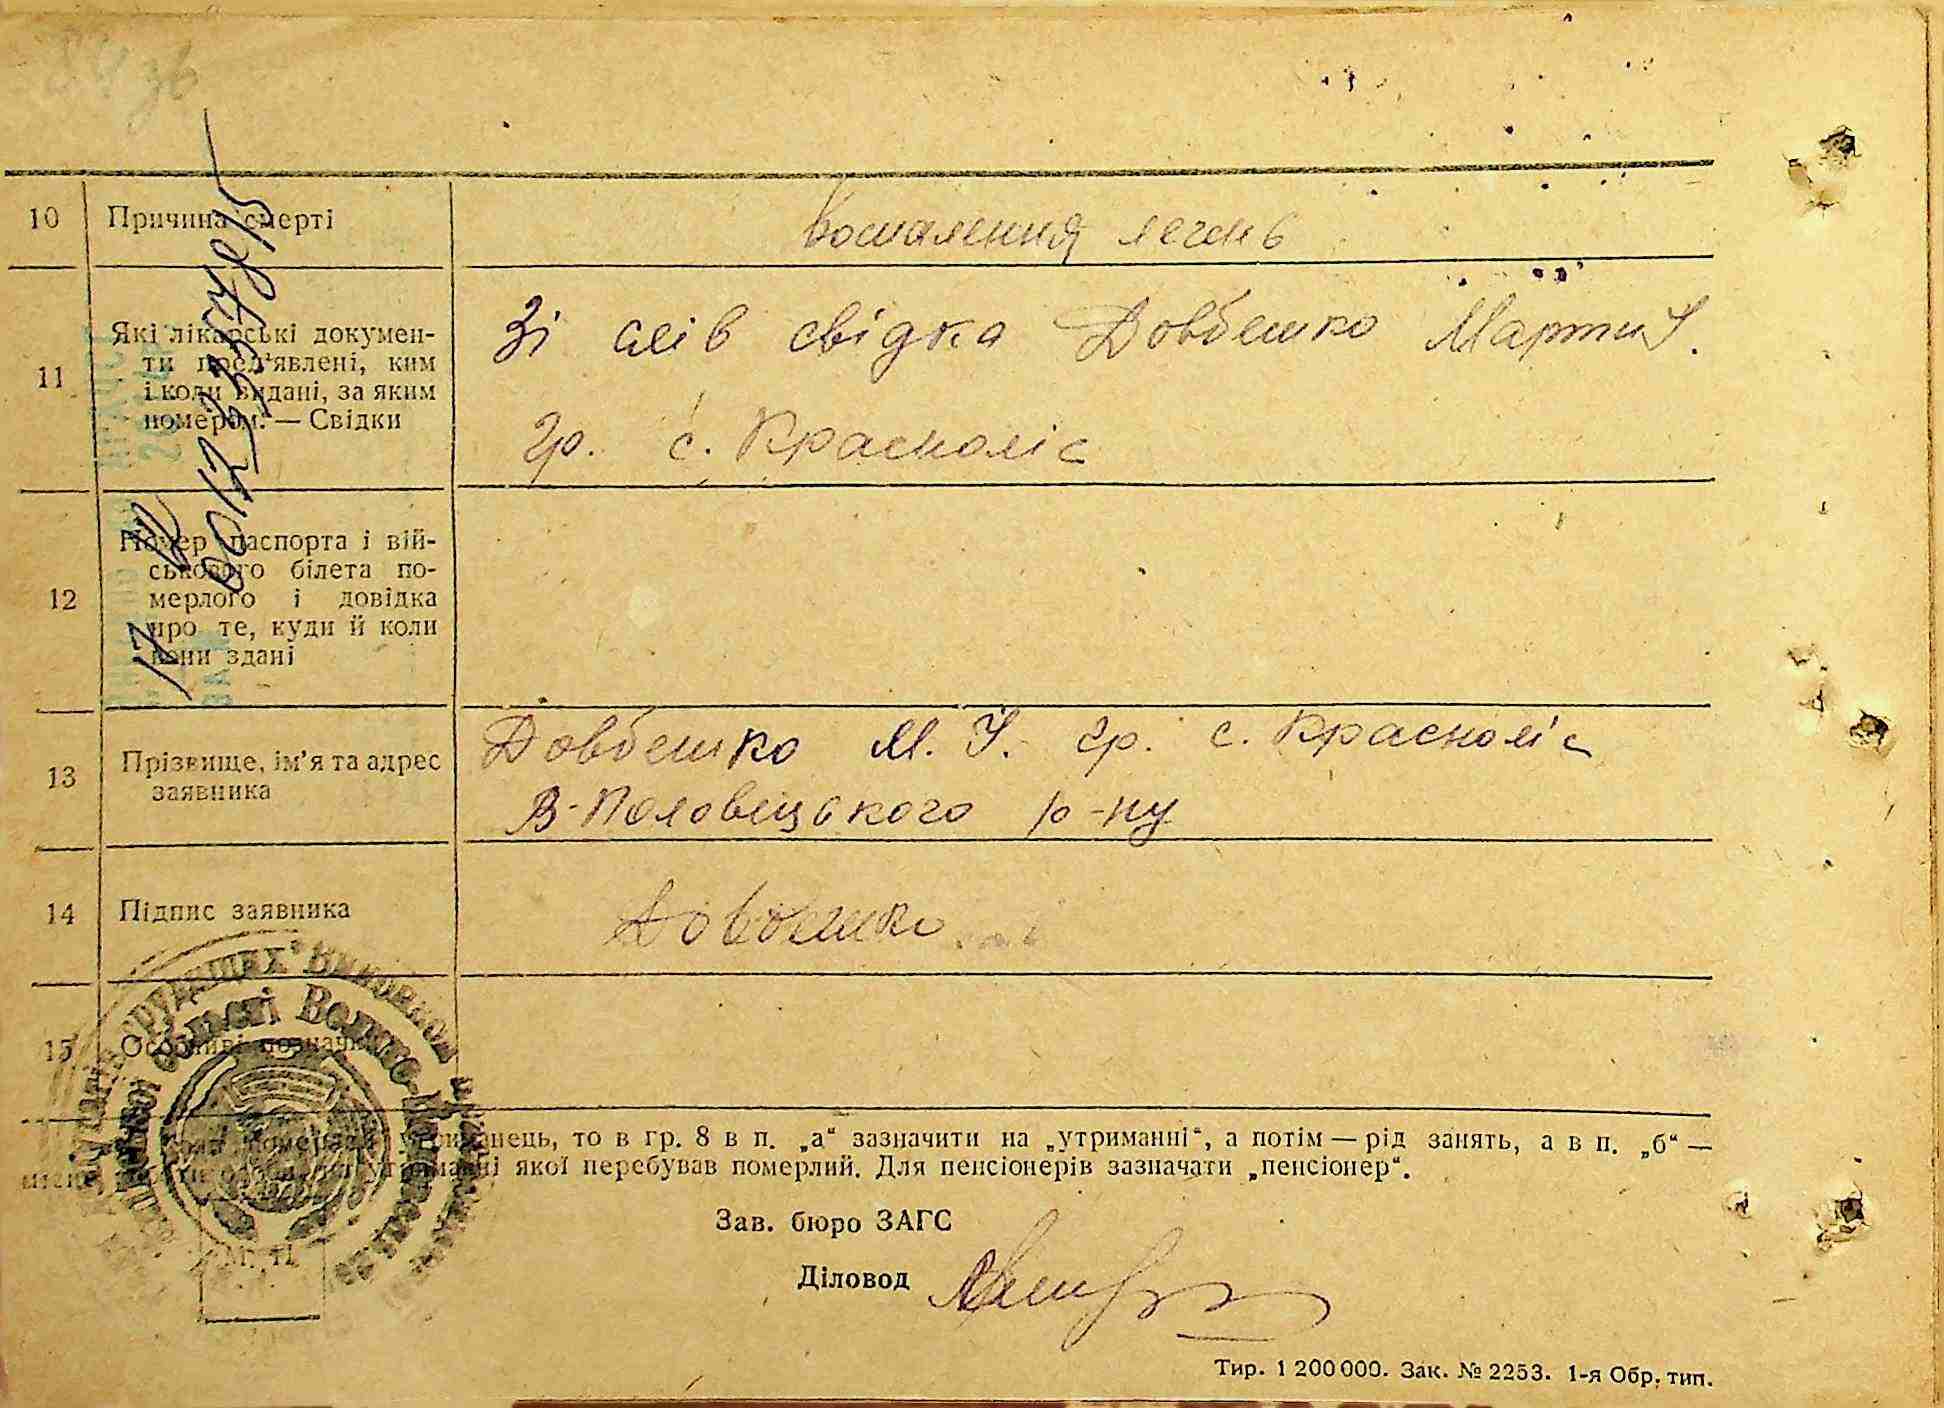 10 Причина смерті
Воспалення легень
11 Які лікарські докумен-
ти пред'явлені, ким
і коли видані, за яким
номером. — Свідки
Зі слів свідка Довбешко Мартин У.
гр. с. Красноліс
12 Номер паспорта і вій-
ськового білета по-
мерлого і довідка
про те, куди й коли
вони здані
13 Прізвище, ім'я та адрес
заявника
Довбешко М. У. гр. с. Красноліс
В-Половецького р-ну
14 Підпис заявника
Довбешко
15 Особливі позначки
утриманець, то в гр. 8 в п. „а“ зазначити на „утриманні“, а потім — рід занять, а в п. „б“ —
утриманні якої перебував померлий. Для пенсіонерів зазначати „пенсіонер“.
Зав. бюро ЗАГС
Діловод
М. П.
трудящих Виконком
області Велико-
Тир. 1 200 000. Зак. № 2253. 1-я Обр. тип.